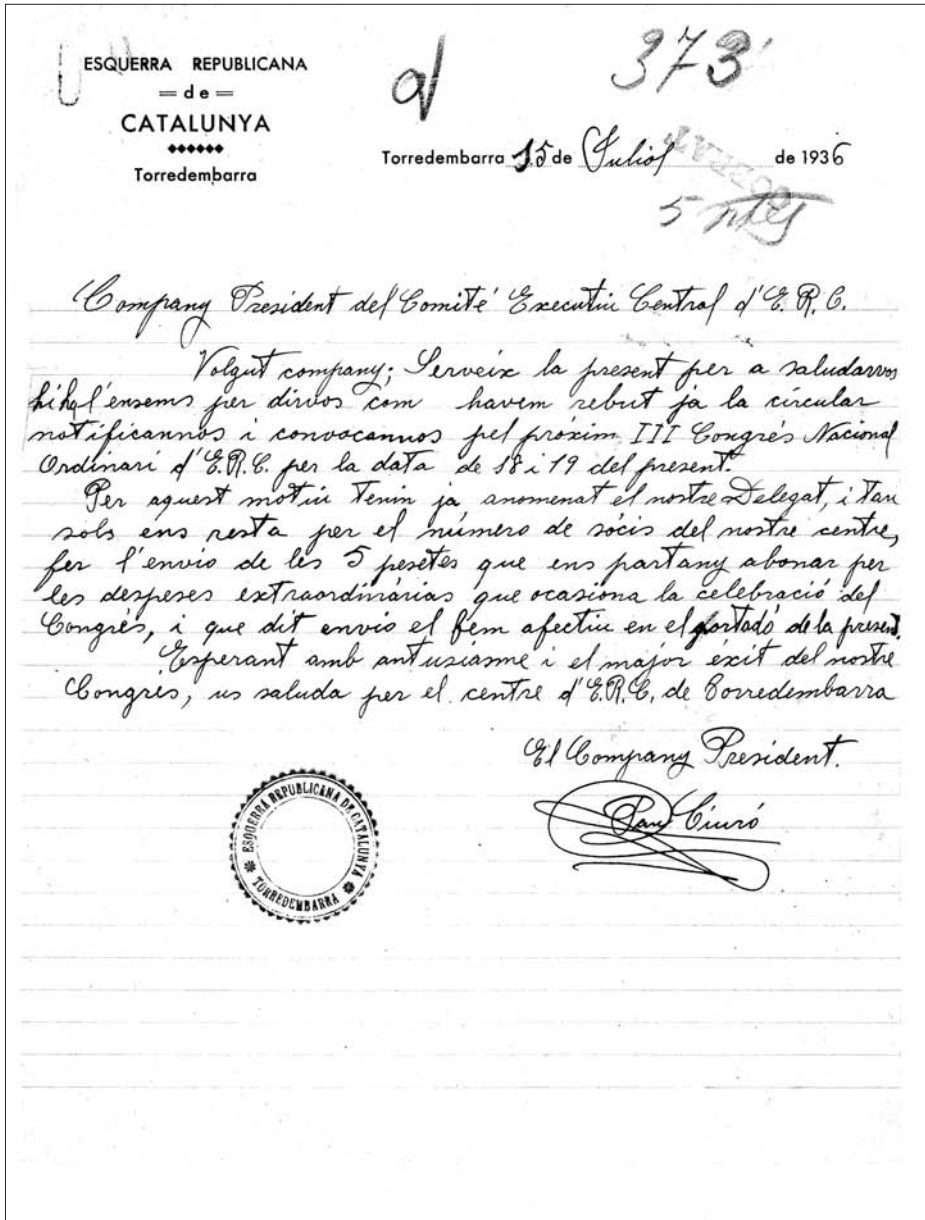 ESQUERRA REPUBLICANA
= de =
CATALUNYA
Torredembarra
373
Torredembarra 15 de Juliol de 1936
5 ptes
Company President del Comité Executiu Central d'E.R.C.
Volgut company; Serveix la present per a saludarvos
l'ensems per dirvos com havem rebut ja la circular
notificannos i convocannos pel próxim III Congrés Nacional
Ordinari d'E.R.C. per la data de 18 i 19 del present.
Per aquest motiu tenin ja anomenat el nostre Delegat, i tan
sols ens resta per el número de sócis del nostre centre,
fer l'envio de les 5 pesetes que ens partany abonar per
les despeses extraordinárias que ocasiona la celebració del
Congrés, i que dit envio el fem afectiu en el portadó de la present.
Esperant amb antusiasme i el major éxit del nostre
Congrés, us saluda per el centre d'E.R.C. de Torredembarra
El Company President.
Pau Ciuró
ESQUERRA REPUBLICANA DE CATALUNYA
TORREDEMBARRA